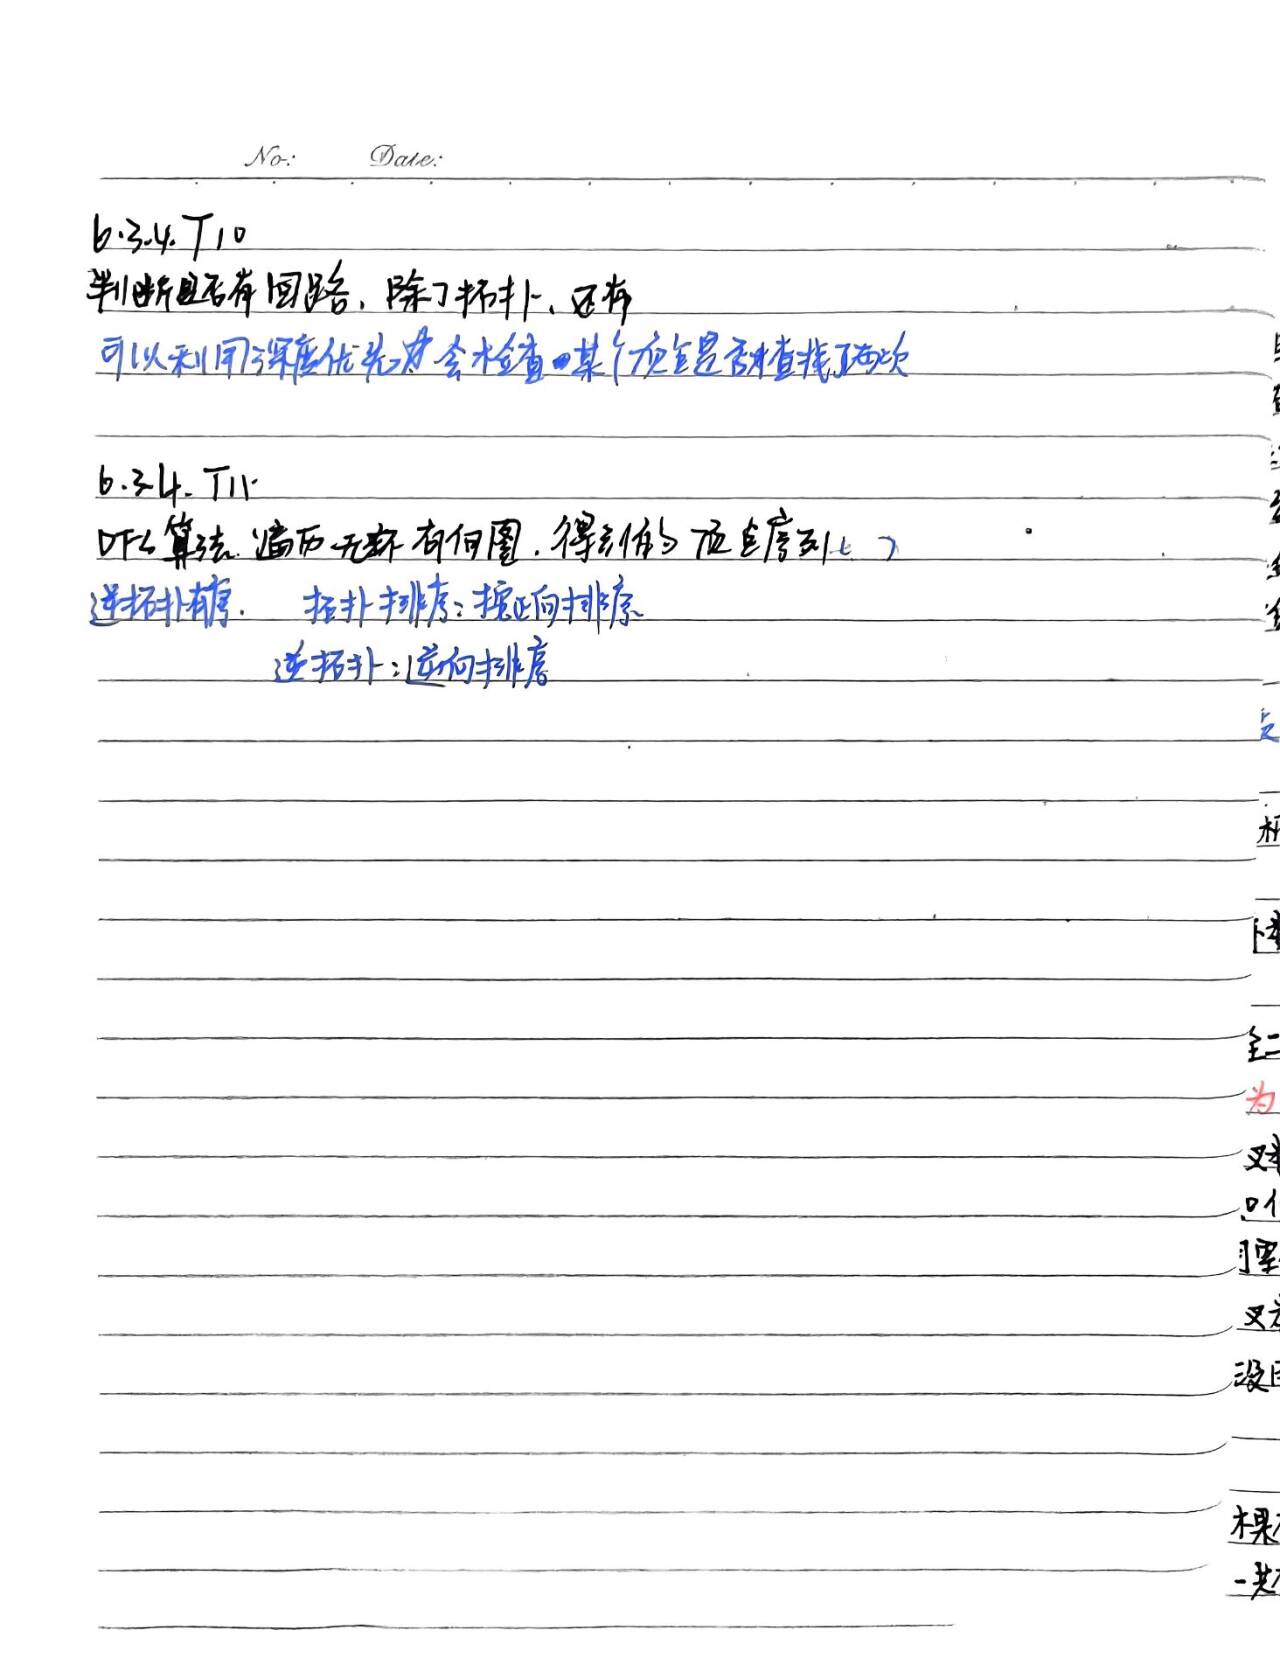 No: Date:
6.3.4. T10
判断是否有回路，除了拓扑，还有
可以利用深度优先 会检查某个顶点是否被查找了两次
6.3.4. T11.
DFS算法遍历无环有向图，得到的顶点序列( )
逆拓扑有序. 拓扑排序：按正向排序
逆拓扑：逆向排序
为
又
没
棵
一共